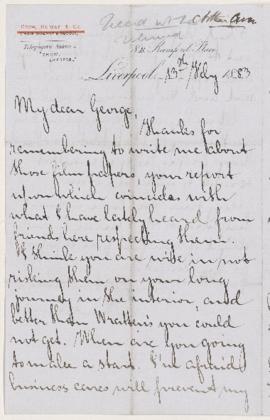 Telegraphic Address
8A Rumford Place,
Liverpool, 13th Feby 1883
My dear George,
Thanks for
remembering to write me about
those film papers, your report
upon which coincides with
what I have lately heard from
friends here respecting them.
I think you are wise in not
risking them on your long
journey in the interior, and
better than Wratten's you could
not get. When are you going
to make a start. I'm afraid
business cares will prevent my